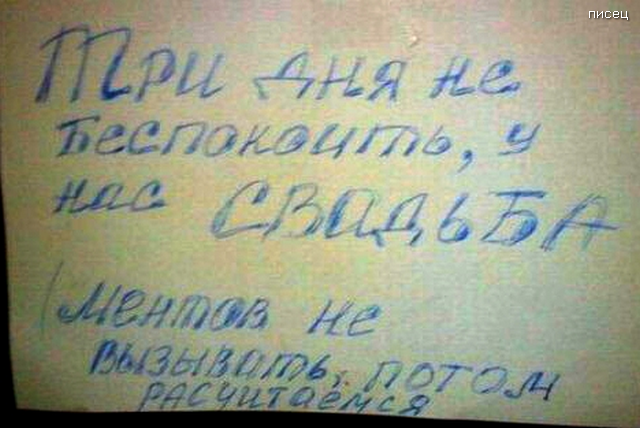 писец
Три дня не
беспокоить, у
нас СВАДЬБА
(ментов не
вызывать, потом
расчитаемся